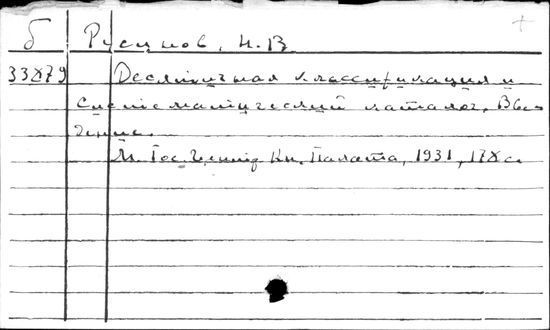 б Русинов, Н.В.
33Х79 Десятичная классификация и
систематический каталог. Вве-
дение.
М. Гос. Центр Кн. Палата, 1931, 178 с.